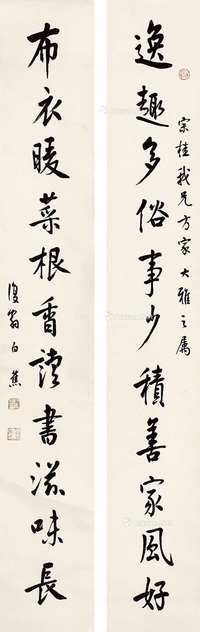 逸趣多俗事少積善家風好
宗桂我兄方家大雅之屬
布衣暖菜根香讀書滋味長
復翁白蕉